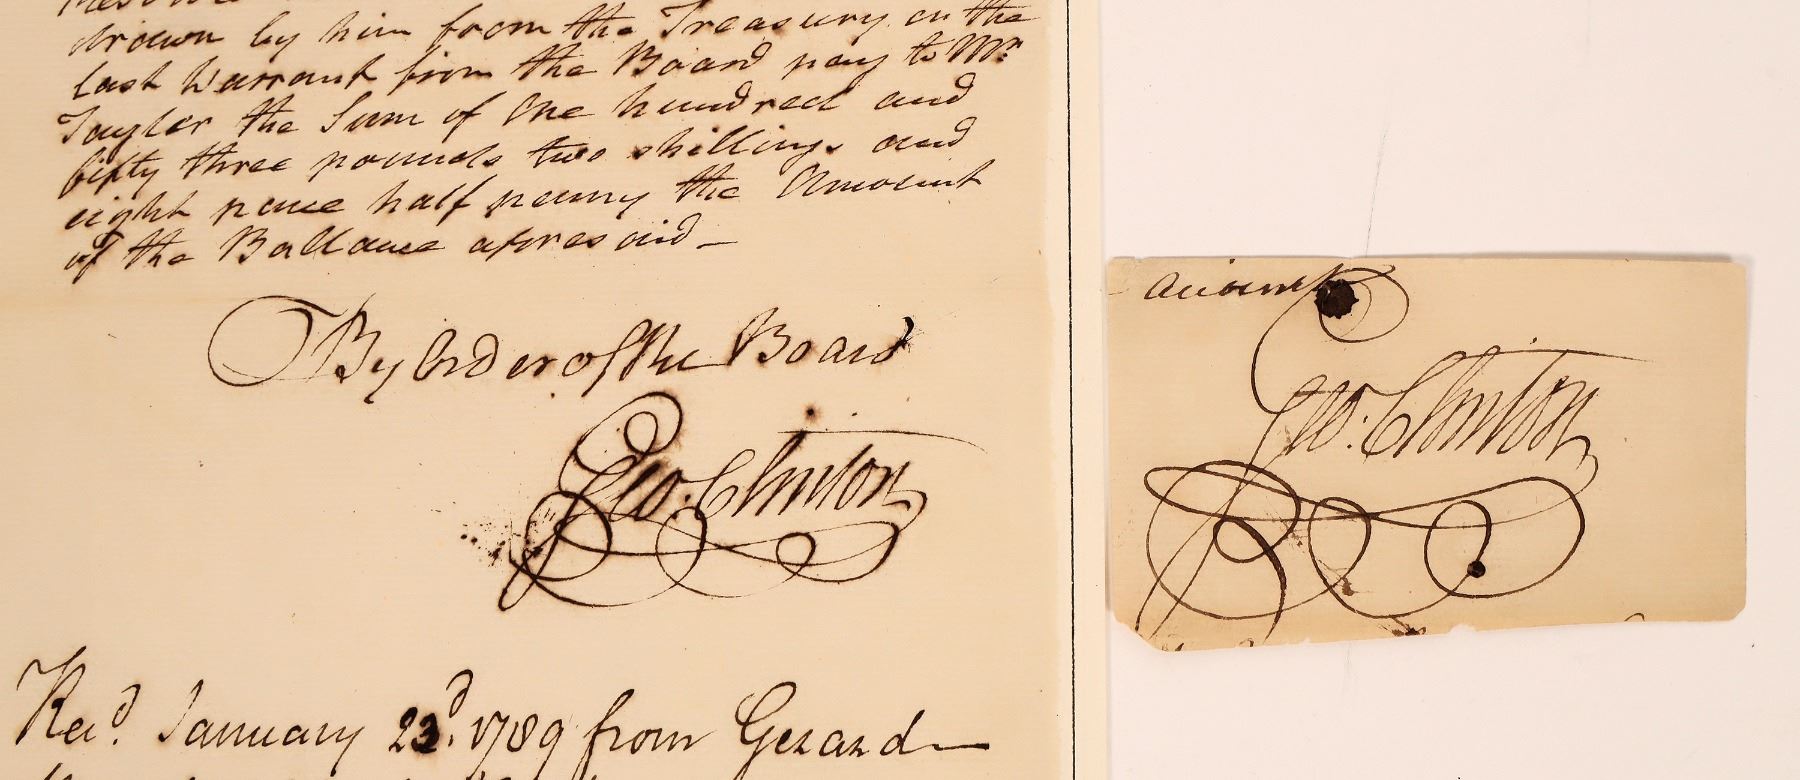 drawn by him from the Treasury on the
last Warrant from the Board pay to Mr
Taylor the Sum of One hundred and
fifty three pounds two shillings and
eight pence half penny the Amount
of the Ballance aforesaid—
By Order of the Board
Geo. Clinton
Recd. January 23d. 1789 from Gerard
Geo. Clinton